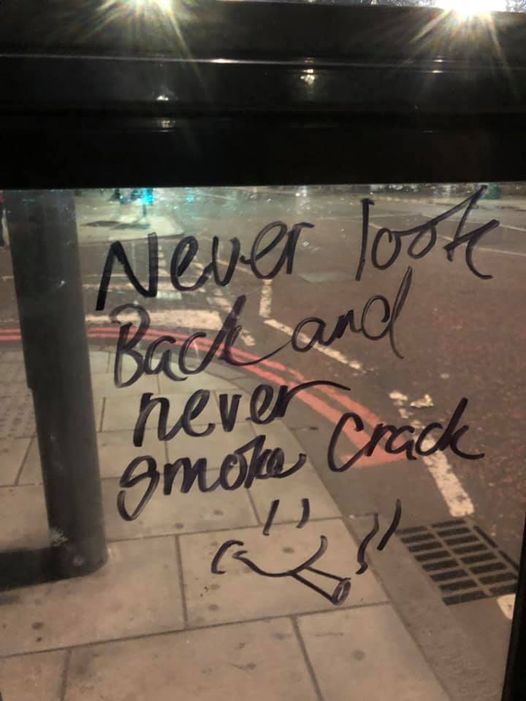 Never look
Back and
never
smoke crack